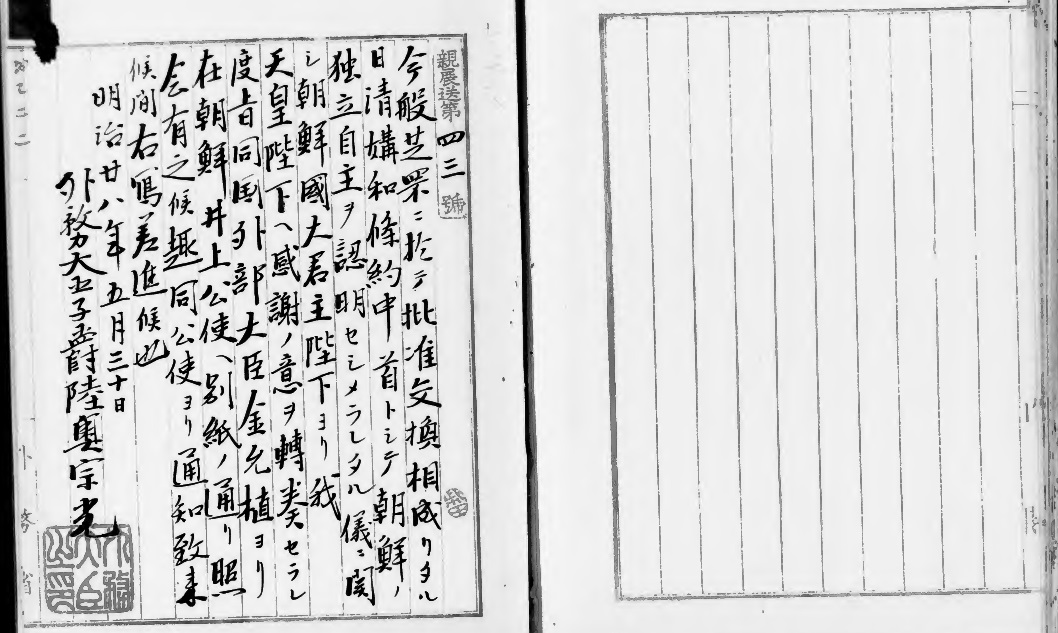 親展送第四三號
今般芝罘ニ於テ批准交換相成リタル
日清媾和條約中首トシテ朝鮮ノ
独立自主ヲ認明セシメラレタル儀ニ関
シ朝鮮國大君主陛下ヨリ我
天皇陛下ヘ感謝ノ意ヲ轉奏セラレ
度旨同国外部大臣金允植ヨリ
在朝鮮井上公使ヘ別紙ノ通リ照
会有之候趣同公使ヨリ通知致来
候間右寫差進候也
明治廿八年五月三十日
外務大臣子爵陸奥宗光
外務大臣之印
外務省